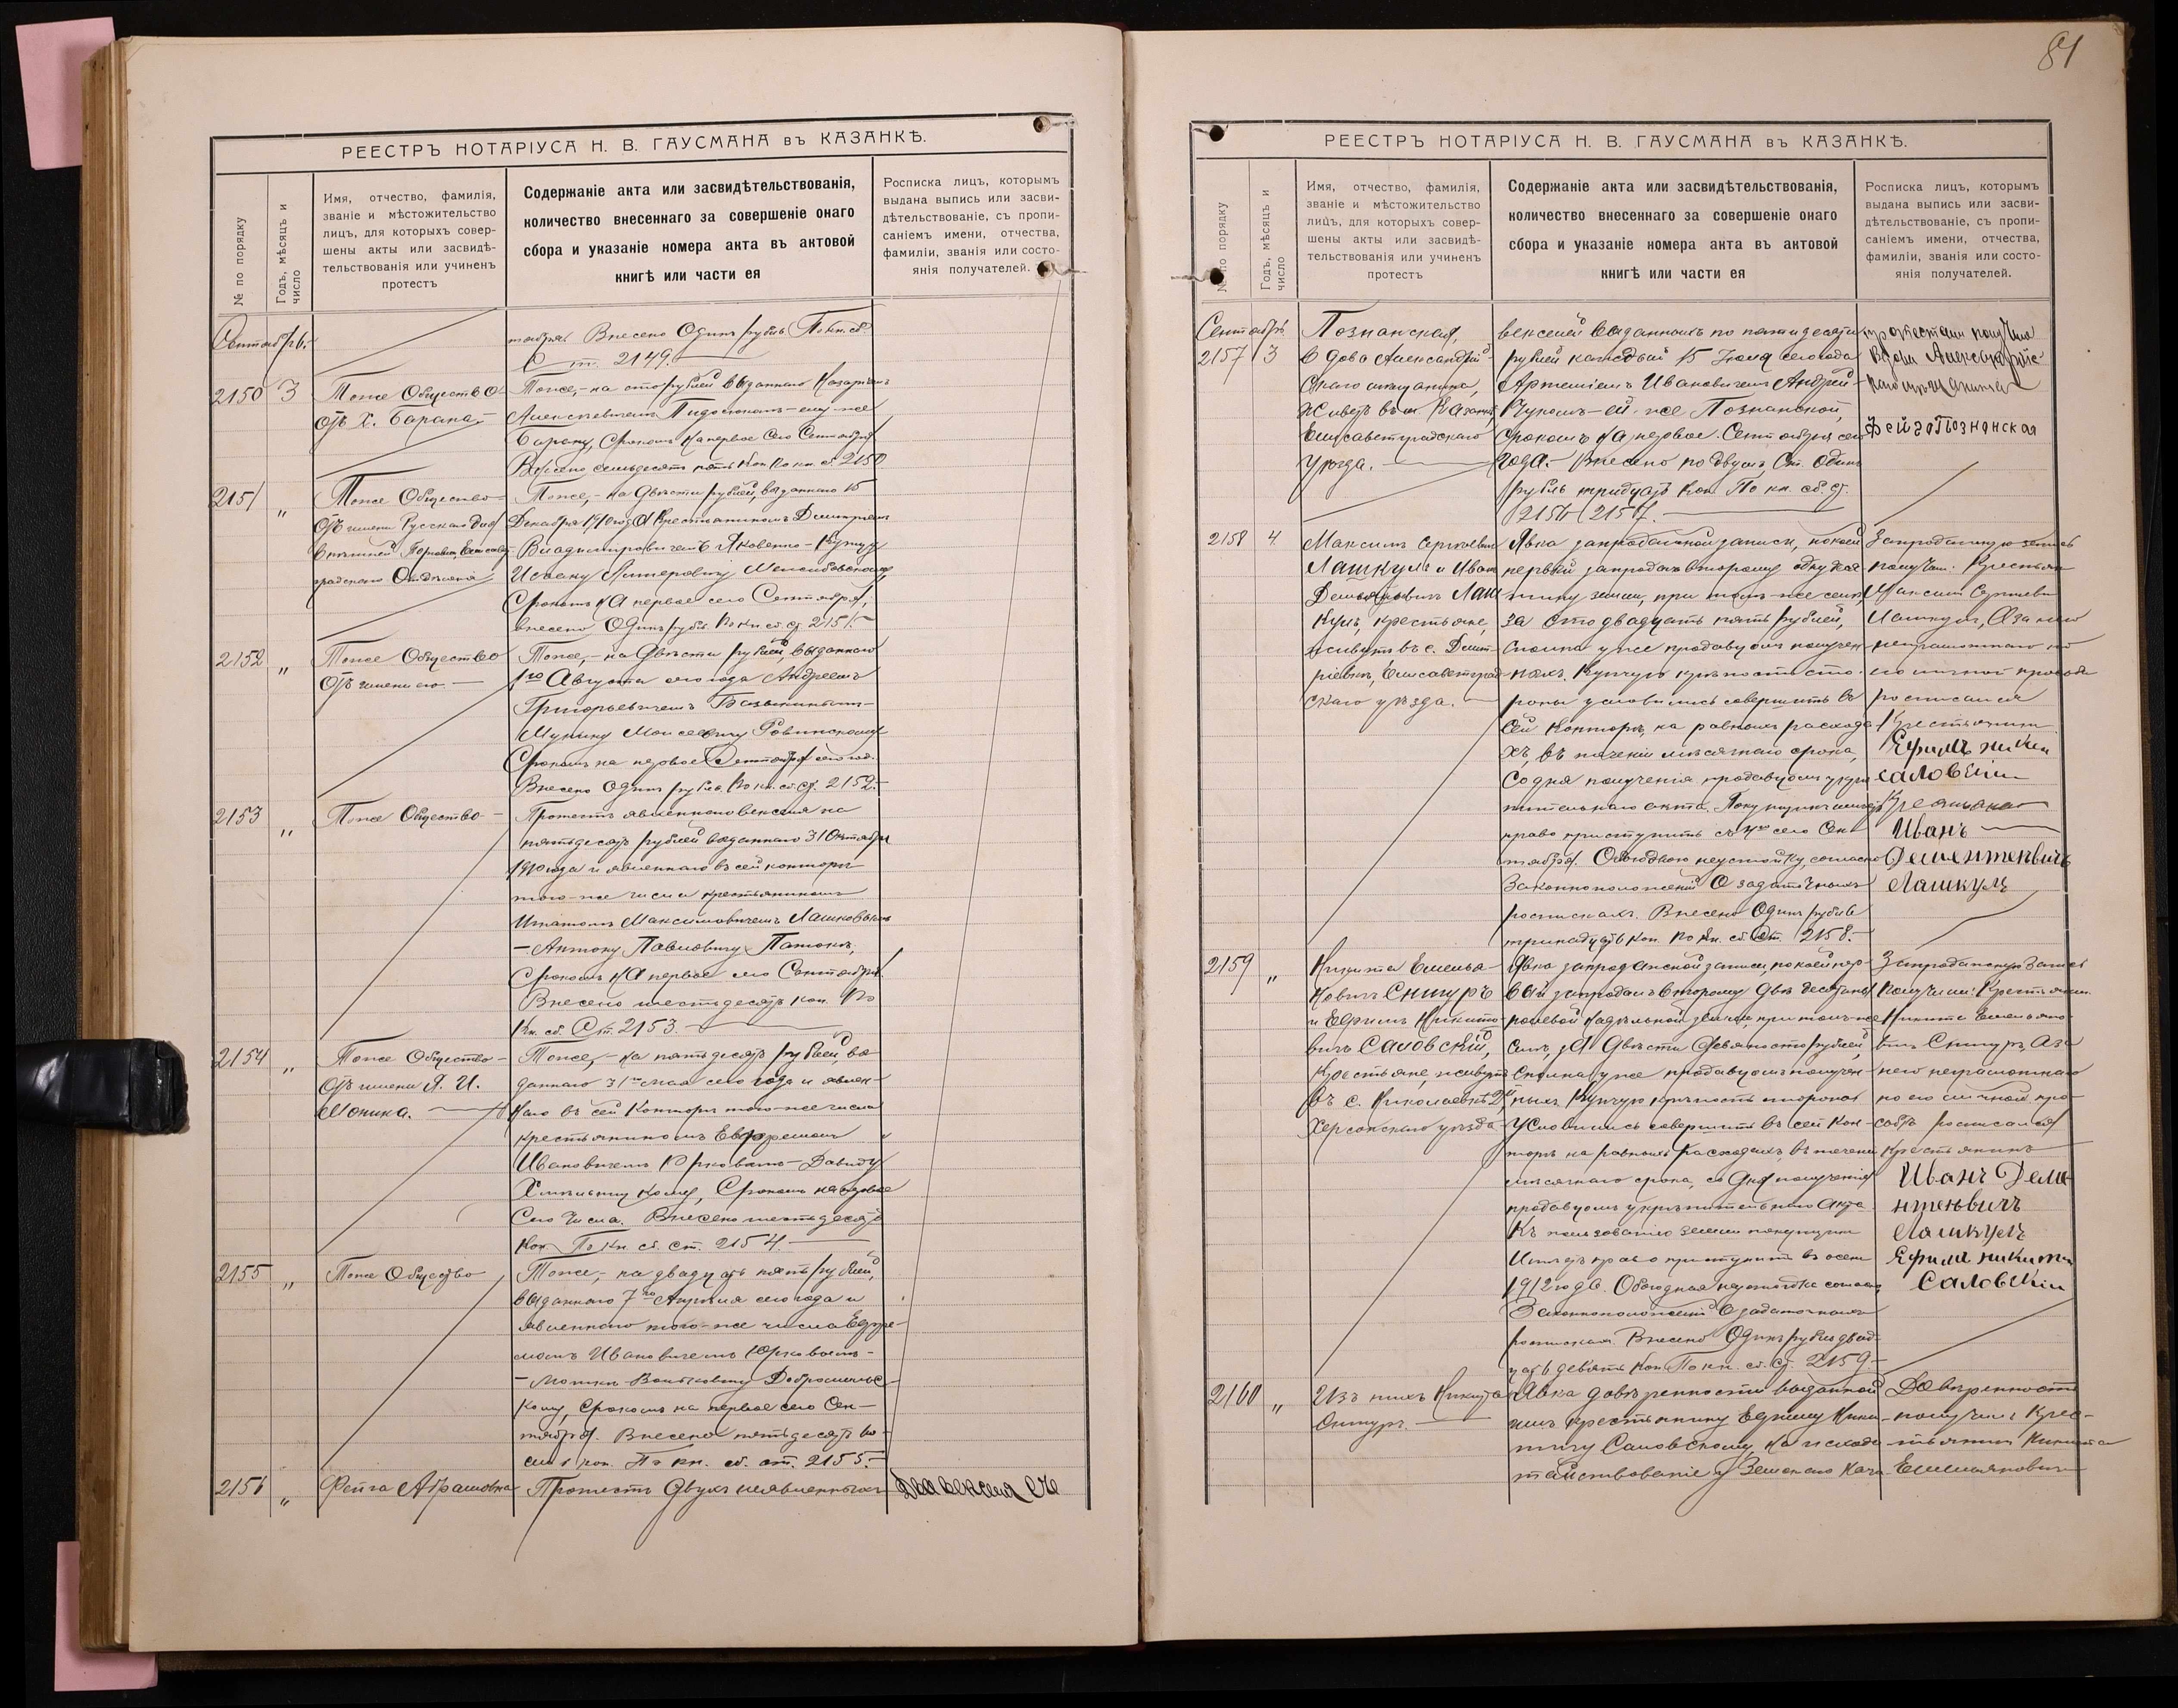 РЕЕСТРЪ НОТАРІУСА Н. В. ГАУСМАНА въ КАЗАНКѢ.
№ по порядку
Годъ, мѣсяцъ и
число
Имя, отчество, фамилія,
званіе и мѣстожительство
лицъ, для которыхъ совер-
шены акты или засвидѣ-
тельствованія или учиненъ
протестъ
Содержаніе акта или засвидѣтельствованія,
количество внесеннаго за совершеніе онаго
сбора и указаніе номера акта въ актовой
книгѣ или части ея
Росписка лицъ, которымъ
выдана выпись или засви-
дѣтельствованіе, съ пропи-
саніемъ имени, отчества,
фамиліи, званія или состо-
янія получателей.
Сентябрь.
тября Внесено Одинъ рубль По кн. сб.
Ст. 2149.
2150 3
Тоже Общество
отъ Х. Барана
Тоже,- на сто рублей выданнаго
ему-же
Барану, Срокомъ на первое сего Сентября
Внесено семьдесятъ пять коп. По кн. сб. 2150
2151 "
Тоже Общество
Отъ имени Русскаго для
Внѣшней Торговли Елисавет-
градскаго Отдѣленія
Тоже,- на двѣсти рублей, выданнаго 15
Декабря 1910 года Крестьяниномъ Дмитріемъ
Владиміровичемъ Яковенко-
Исааку
Срокомъ на первое сего Сентября;
внесено Одинъ рубль. По кн. сб. ст. 2151.-
2152 "
Тоже Общество
Отъ имени его.-
Тоже,- на Двѣсти рублей, выданнаго
1го Августа сего года Андреемъ
Григорьевичемъ
Моисеевичу Рабиновичу
Срокомъ на первое Сентября сего год.
Внесено Одинъ рубль. По кн. сб. ст. 2152.-
2153 "
Тоже Общество-
Протестъ явленнаго векселя на
пятьдесятъ рублей выданнаго 31 Октября
1910 года и явленнаго въ сей конторѣ
того-же числа крестьяниномъ
Игнатомъ Максимовичемъ
- Антону Павловичу
Срокомъ на первое сего Сентября.
Внесено шестьдесятъ коп. По
Кн. сб. Ст. 2153.-
2154 "
Тоже Общество-
Отъ имени Я. И.
Тоже,- на пятьдесятъ рублей, вы-
даннаго 31го мая сего года и явлен-
наго въ сей Конторѣ того-же числа
крестьяниномъ Ефремомъ
Ивановичемъ Юрковымъ- Давиду
Срокомъ на первое
Сего Числа. Внесено шестьдесятъ
Коп. По Кн. сб. ст. 2154.-
2155 "
Тоже Общество
Тоже,- на двадцать пять рублей,
выданнаго 7го Апрѣля сего года и
явленнаго того-же числа Ефре-
момъ Ивановичемъ Юрковымъ-
- Доброшинс-
кому, Срокомъ на первое сего Сен-
тября. Внесено пятьдесятъ во-
семь коп. По кн. сб. ст. 2155.-
2156 "
Фейга Абрамовна
Протестъ двухъ неявленныхъ
Два векселя съ
81
РЕЕСТРЪ НОТАРІУСА Н. В. ГАУСМАНА въ КАЗАНКѢ.
№ по порядку
Годъ, мѣсяцъ и
число
Имя, отчество, фамилія,
званіе и мѣстожительство
лицъ, для которыхъ совер-
шены акты или засвидѣ-
тельствованія или учиненъ
протестъ
Содержаніе акта или засвидѣтельствованія,
количество внесеннаго за совершеніе онаго
сбора и указаніе номера акта въ актовой
книгѣ или части ея
Росписка лицъ, которымъ
выдана выпись или засви-
дѣтельствованіе, съ пропи-
саніемъ имени, отчества,
фамиліи, званія или состо-
янія получателей.
Сентябрь
2157 3
Познанская,
Вдова Александрій-
скаго мѣщанина,
Живетъ въ м. Казанкѣ,
Елисаветградскаго
уѣзда.-
векселей выданныхъ по пятидесяти
рублей каждый 15 Іюля сего года
Артеміемъ Ивановичемъ Андрей-
чукомъ- ей-же Познанской,
срокомъ на первое Сентября сего
года.- Внесено по двумъ Ст. Одинъ
рубль тридцать Коп. По кн. сб. ст.
2156 2157.
протестами получила
Вдова Александрійс-
каго мѣщанина
Фейга Познанская
2158 4
Максимъ Сергѣевичъ
Лашкулъ и Иванъ
Дементьевичъ Лаш-
кулъ, крестьяне,
живутъ въ с. Дмит-
ріевкѣ, Елисаветград-
скаго уѣзда.-
Явка запродажной записи, по коей
первый запродалъ второму одну деся-
тину земли, при томъ-же селѣ,
за сто двадцать пять рублей,
Сполна уже продавцомъ получен-
ныхъ. Купчую крѣпость сто-
роны условились совершить въ
сей Конторѣ, на равныхъ расхода-
хъ, въ теченіи мѣсячнаго срока,
Со дня полученія продавцомъ укрѣ-
пительнаго акта.
право приступить съ 4го сего Сен-
тября. Обоюдною неустойку, согласно
Законоположеній О задаточныхъ
роспискахъ. Внесено Одинъ рубль
тринадцать коп. По кн. сб. Ст. 2158.-
Запродажную запись
получилъ: Крестьян.
Максимъ Сергѣевичъ
Лашкулъ, А за него
неграмотнаго по
его личной просьбѣ
росписался
Крестьянинъ
Ефимъ никит
саловскій
Крестьянинъ
Иванъ
Дементеевичъ
Лашкулъ
2159 "
Никита Емелья-
новичъ Снигуръ
и Ефимъ Никито-
вичъ Саловскій,
Крестьяне, живутъ
въ с. Николаевкѣ 2й,
Херсонскаго уѣзда
Явка запродажной записи, по коей пер-
вый запродалъ второму двѣ десятины
полевой надѣльной земли, при томъ-же
селѣ, за Двѣсти девяносто рублей,
Сполна уже продавцомъ получен-
ныхъ. Купчую крѣпость стороны
Условились совершить въ сей Кон-
торѣ на равныхъ расходахъ, въ теченіи
мѣсячнаго срока, со дня полученія
продавцомъ укрѣпительнаго акта.
Къ пользованію землею покупщикъ
Имѣетъ право приступить въ осени
1912 года. Обоюдная неустойка согласно
Законоположеній О задаточныхъ
роспискахъ. Внесено Одинъ рубль двад-
цать девять Коп. По кн. сб. ст. 2159.-
Запродажную Запись
Получили: Крестьянин.
Никита Емельяно-
вичъ Снигуръ, А за
него неграмотнаго
по его личной про-
сьбѣ росписался
Крестьянинъ
Иванъ Деме
нтеьвичъ
Лашкулъ
Ефимъ никити
Саловскій
2160 "
Изъ нихъ Никита
Снигуръ.
Явка довѣренности выданной
имъ крестьянину Ефиму Ники-
тичу Саловскому, на исхода-
тайствованіе у Земскаго Нача-
Довѣренность
получилъ Крес-
тьянинъ Никита
Емельяновичъ